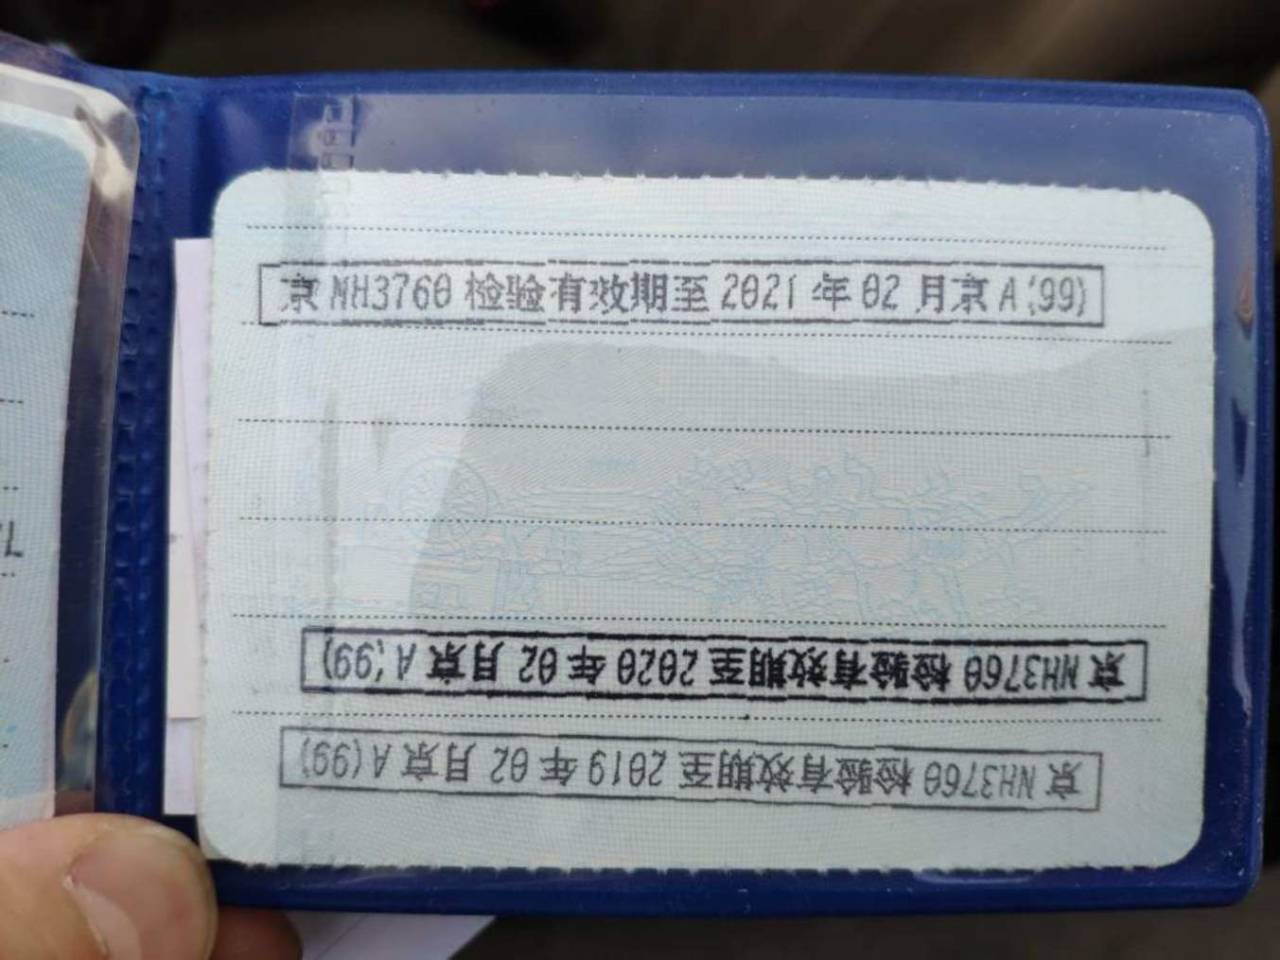 京NH3760检验有效期至2021年02月京A(99)
京NH3760检验有效期至2020年02月京A(99)
京NH3760检验有效期至2019年02月京A(99)